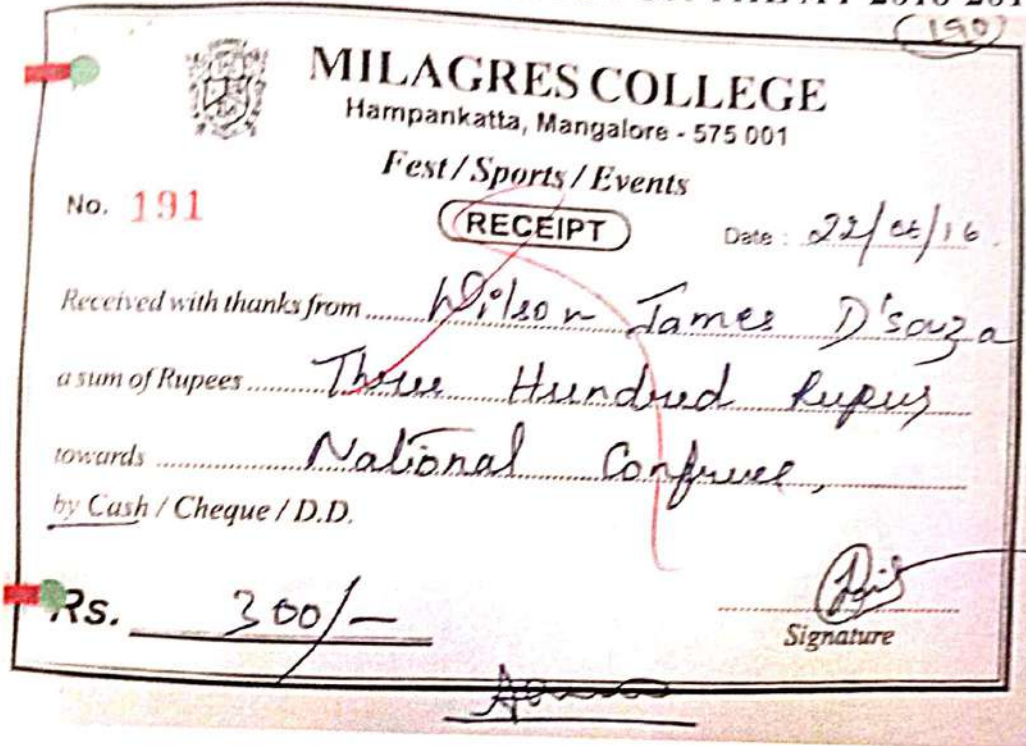 (190)
MILAGRES COLLEGE
Hampankatta, Mangalore - 575 001
Fest / Sports / Events
No. 191
RECEIPT
Date : 22/ /16.
Received with thanks from Wilson James D'souza
a sum of Rupees Three Hundred Rupees
towards National
by Cash / Cheque / D.D.
Rs. 300/-
Signature